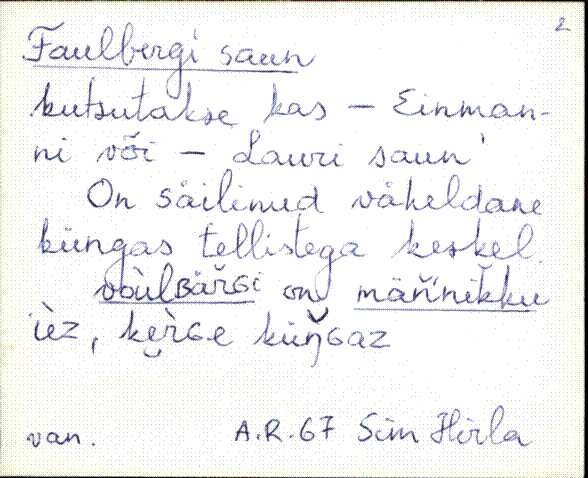 2
Faulbergi saun
kutsutakse kas – Einman-
ni või – Lauri saun'
On säilinud väheldane
küngas tellistega keskel.
voùlʙäřɢi on mäňnikku
ùez, kèrɢe küŋ̌ɢaz
van. A.R. 67 Sim Hirla